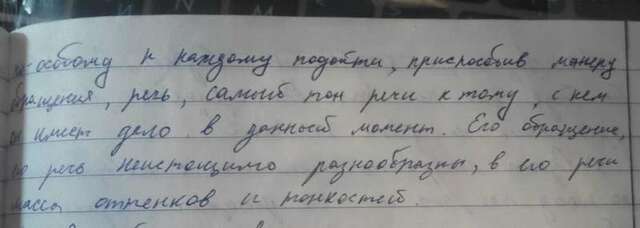 особому к каждому подойти, приспособив манеру
обращения, речь, самый тон речи к тому, с кем
он имеет дело в данный момент. Его обращение,
его речь неистощимо разнообразны, в его речи
масса оттенков и тонкостей.